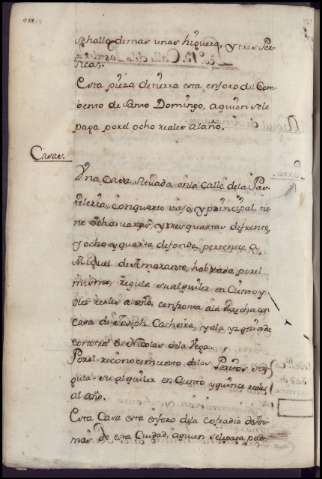 se halla demas unas higuera, y tres Per
sicas.
Esta pieza de tierra esta en foro del Com
bento de Santo Domingo, aquien sele
paga por el ocho reales al año.
Casas.
Una Casa Sittuada en la Calle dela
con quarto vajo, y prinzipal, tie
ne ocho varas, y tres quartas de frente,
y ocho y quarta de fondo, pertenece a
Miguel de Amarante, habitada por el
mismo, regula su alquiler en Ciento y
diez reales a año, confronta a la
casa de Joseph Cacheira, y a la yzquierda
con otra de Nicolas dela Vega.
Por el reconocimiento de los Peritos se re
gula su alquiler en Ciento y quinze reales
al año.
Esta Casa esta en foro dela cofradia de
mas de esta Ciudad, aquien sele paga por